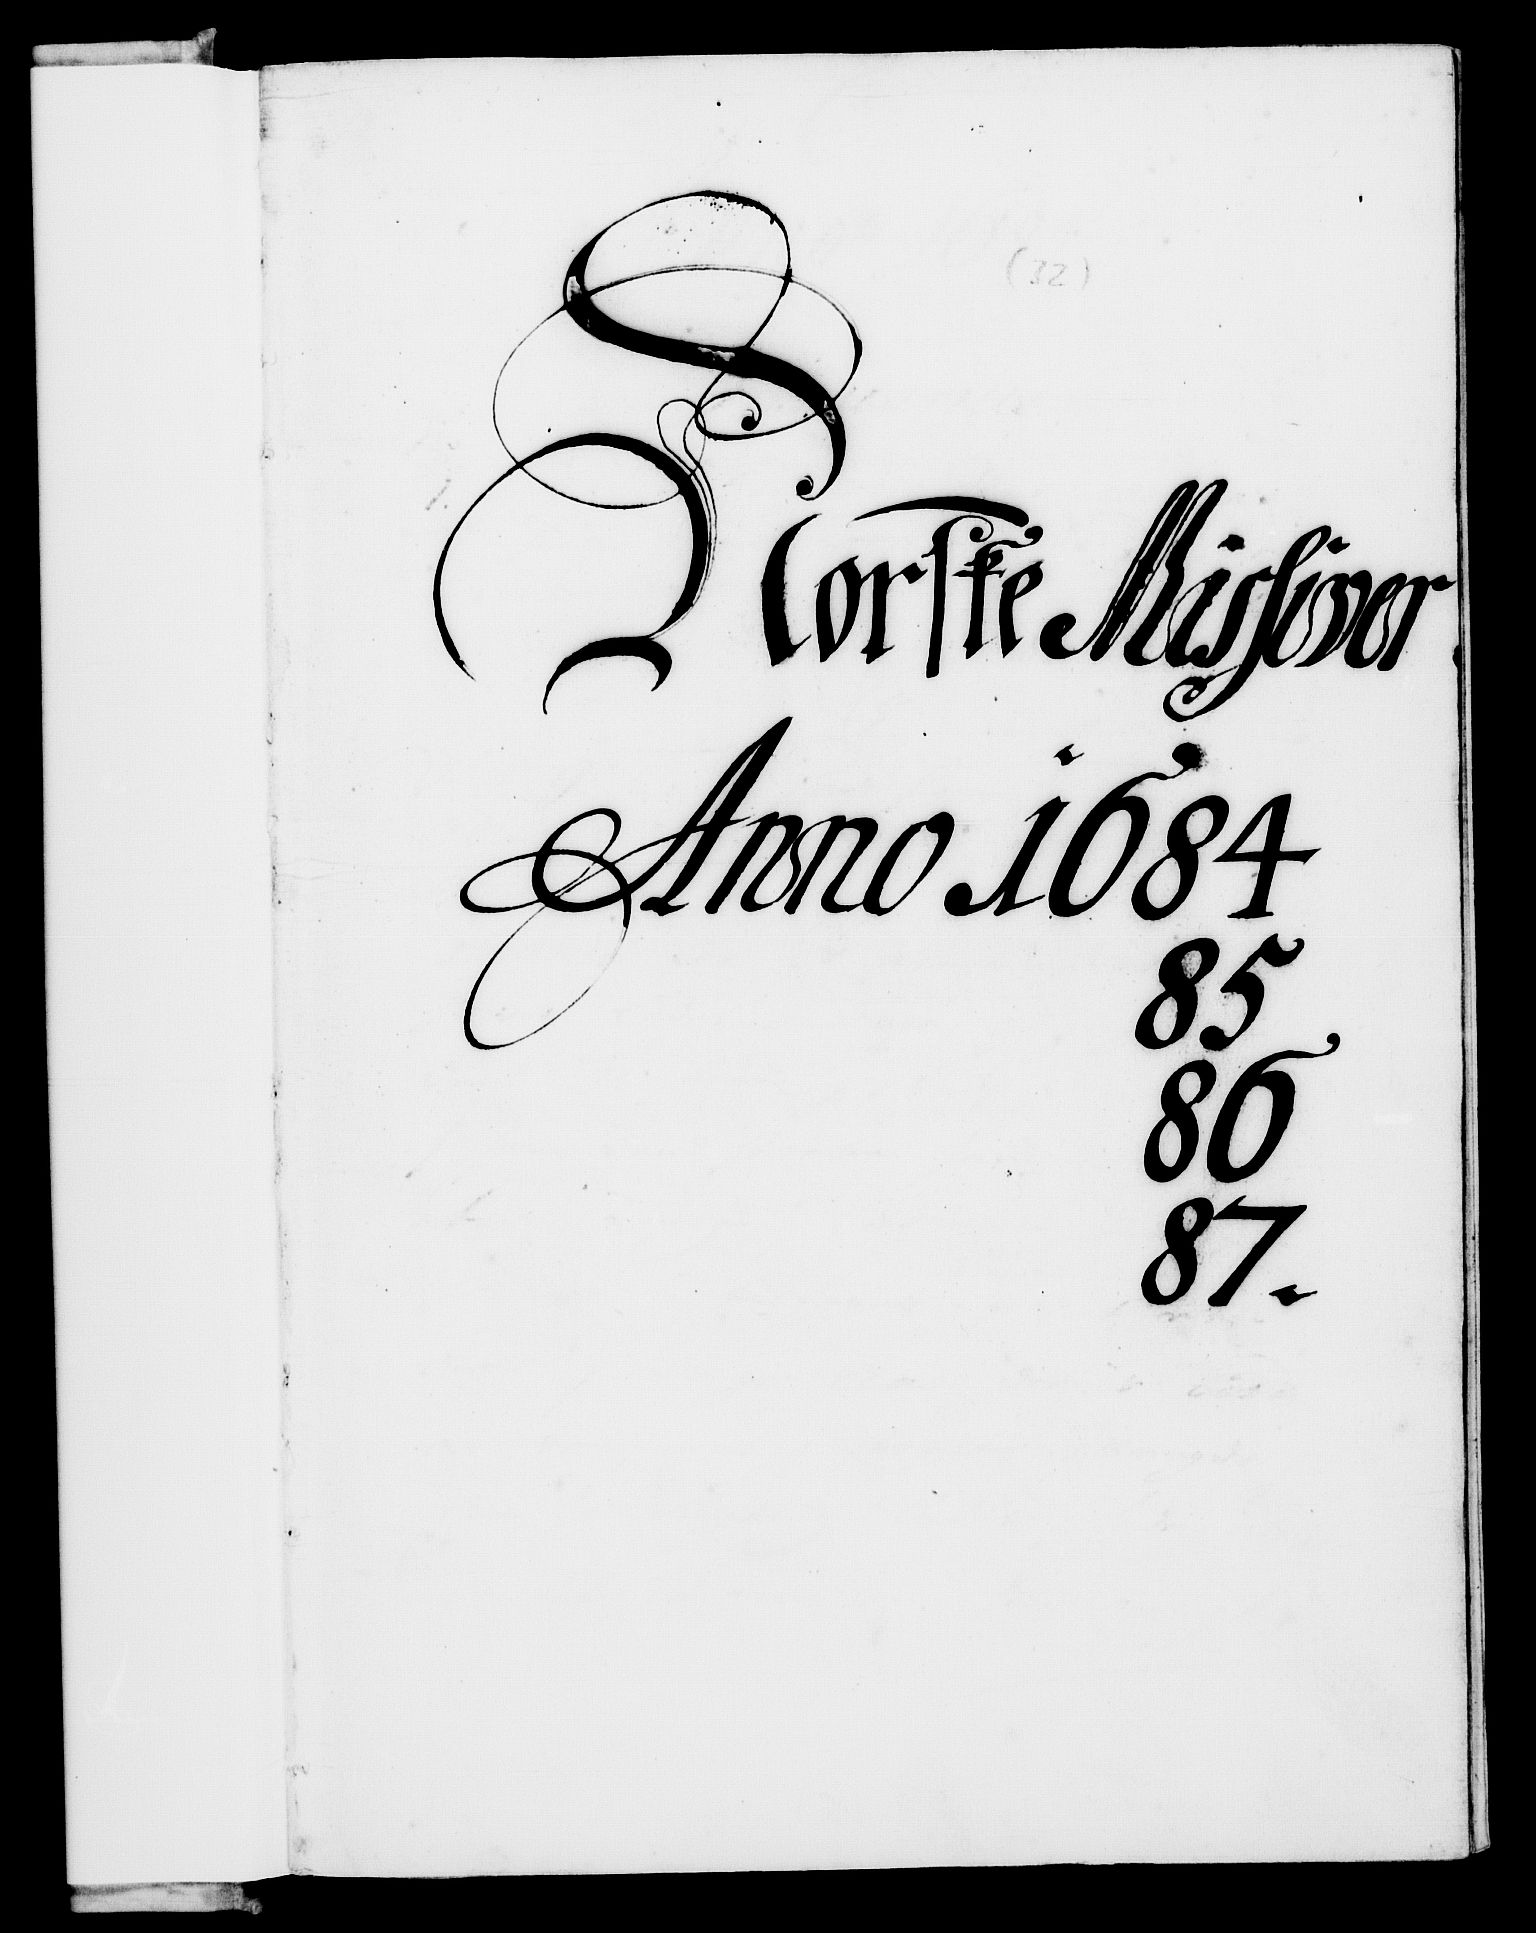 (32)
Norske Missiver.
Anno 1684
85
86
87.